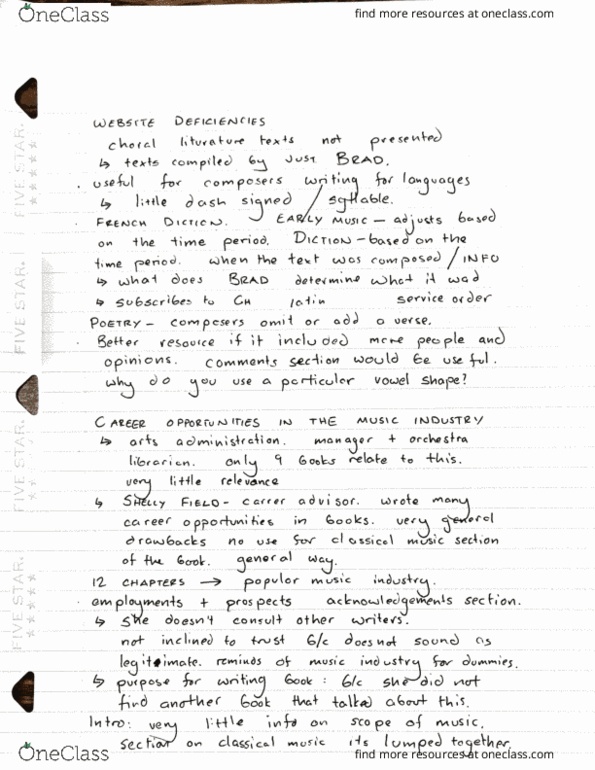 OneClass
find more resources at oneclass.com
WEBSITE DEFICIENCIES
choral liturature texts not presented
↳ texts compiled by JUST BRAD.
useful for composers writing for languages
↳ little dash signed / syllable.
FRENCH DICTION. EARLY MUSIC – adjusts based
on the time period. DICTION – based on the
time period. when the text was composed / INFO
↳ what does BRAD determine what it was
↳ subscribes to CH latin service order
POETRY – composers omit or add a verse.
Better resource if it included more people and
opinions. comments section would be useful.
why do you use a particular vowel shape?
CAREER OPPORTUNITIES IN THE MUSIC INDUSTRY
↳ arts administration. manager + orchestra
librarian. only 9 books relate to this.
very little relevance
↳ SHELLY FIELD – carrer advisor. wrote many
career opportunities in books. very general
drawbacks no use for classical music section
of the book. general way.
12 CHAPTERS → popular music industry.
employments + prospects acknowledgements section.
↳ she doesn't consult other writers.
not inclined to trust b/c does not sound as
legitimate. reminds of music industry for dummies.
↳ purpose for writing book : b/c she did not
find another book that talked about this.
Intro: very little info on scope of music.
section on classical music its lumped together
OneClass
find more resources at oneclass.com
FIVE STAR.
FIVE STAR.
FIVE STAR.
FIVE STAR.